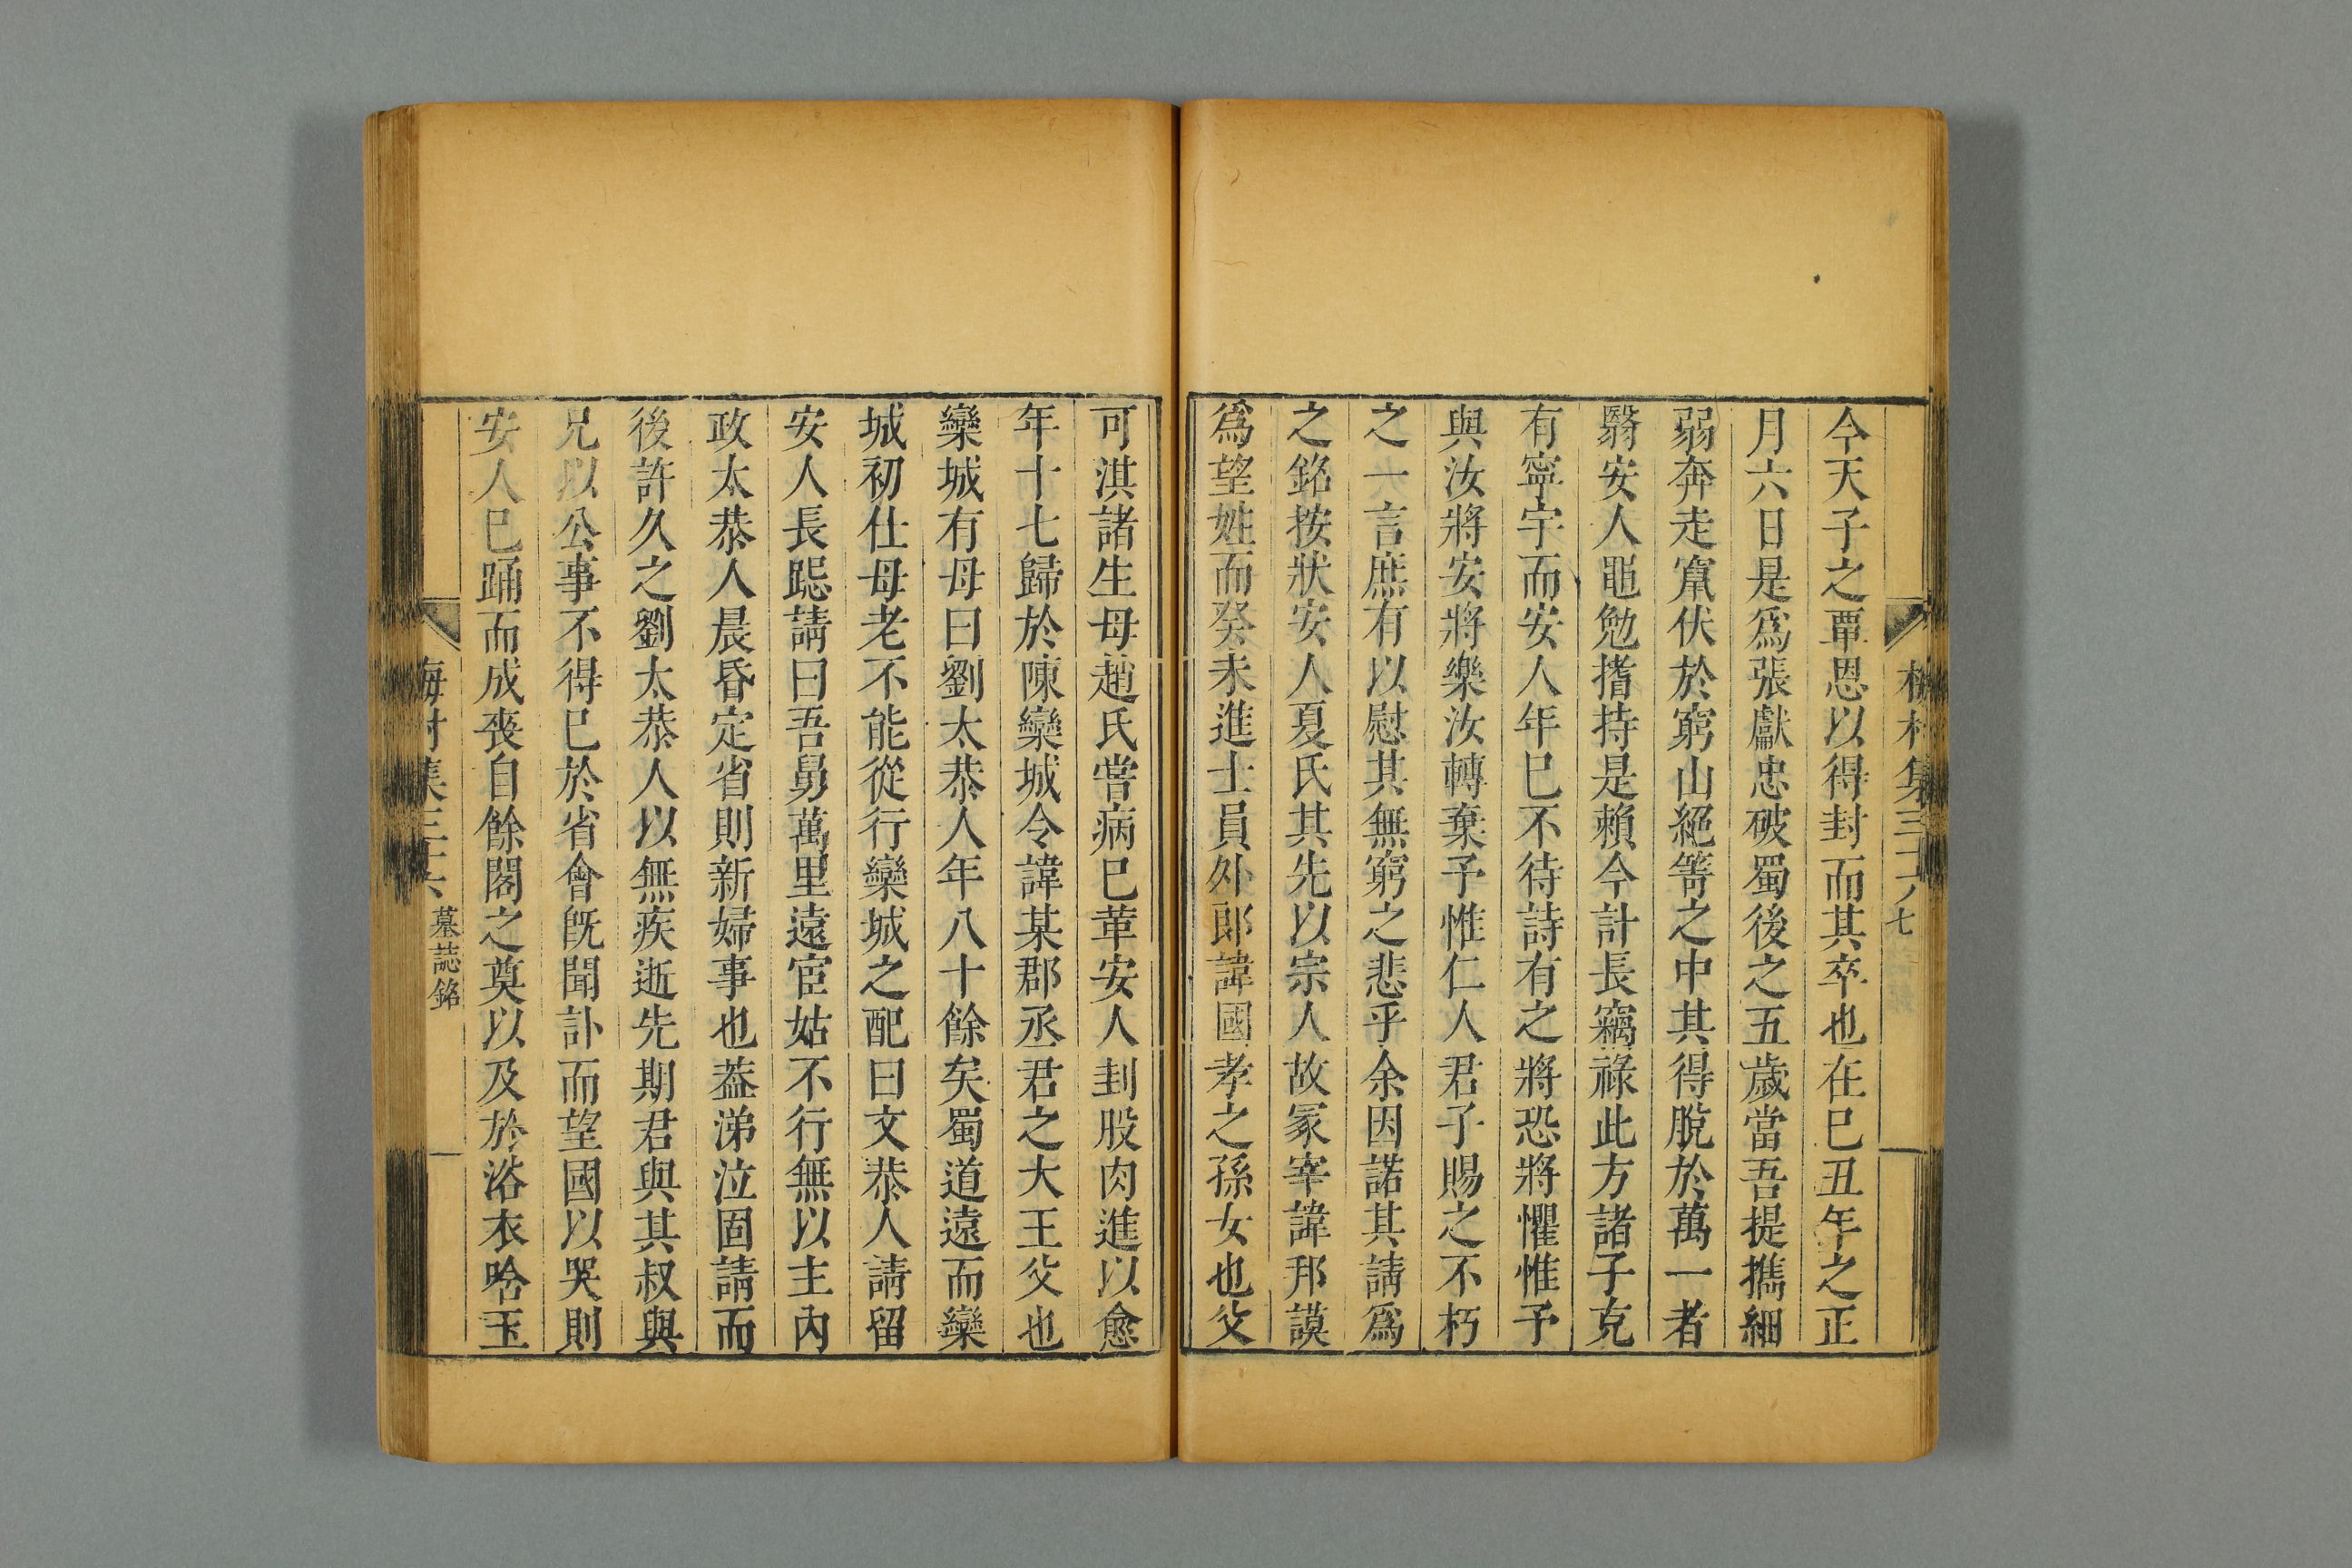 今天子之覃恩以得封而其卒也在巳丑年之正
月六日是爲張獻忠破蜀後之五歲當吾提攜細
弱奔走竄伏於窮山絕箐之中其得脫於萬一者
翳安人黽勉搘持是賴今計長竊祿此方諸子克
有寧宇而安人年巳不待詩有之將恐將懼惟予
與汝將安將樂汝轉棄予惟仁人君子賜之不朽
之一言庶有以慰其無窮之悲乎余因諾其請爲
之銘按狀安人夏氏其先以宗人故冡宰諱邦謨
爲望姓而癸未進士員外郎諱國孝之孫女也父
可淇諸生母趙氏嘗病巳革安人刲股肉進以愈
年十七歸於陳欒城令諱某郡丞君之大王父也
欒城有母曰劉太恭人年八十餘矣蜀道遠而欒
城初仕母老不能從行欒城之配曰文恭人請留
安人長跽請曰吾舅萬里遠宦姑不行無以主內
政太恭人晨昏定省則新婦事也葢涕泣固請而
後許久之劉太恭人以無疾逝先期君與其叔與
兄以公事不得巳於省會旣聞訃而望國以哭則
安人巳踊而成喪自餘閣之奠以及於浴衣哈玉
墓誌銘